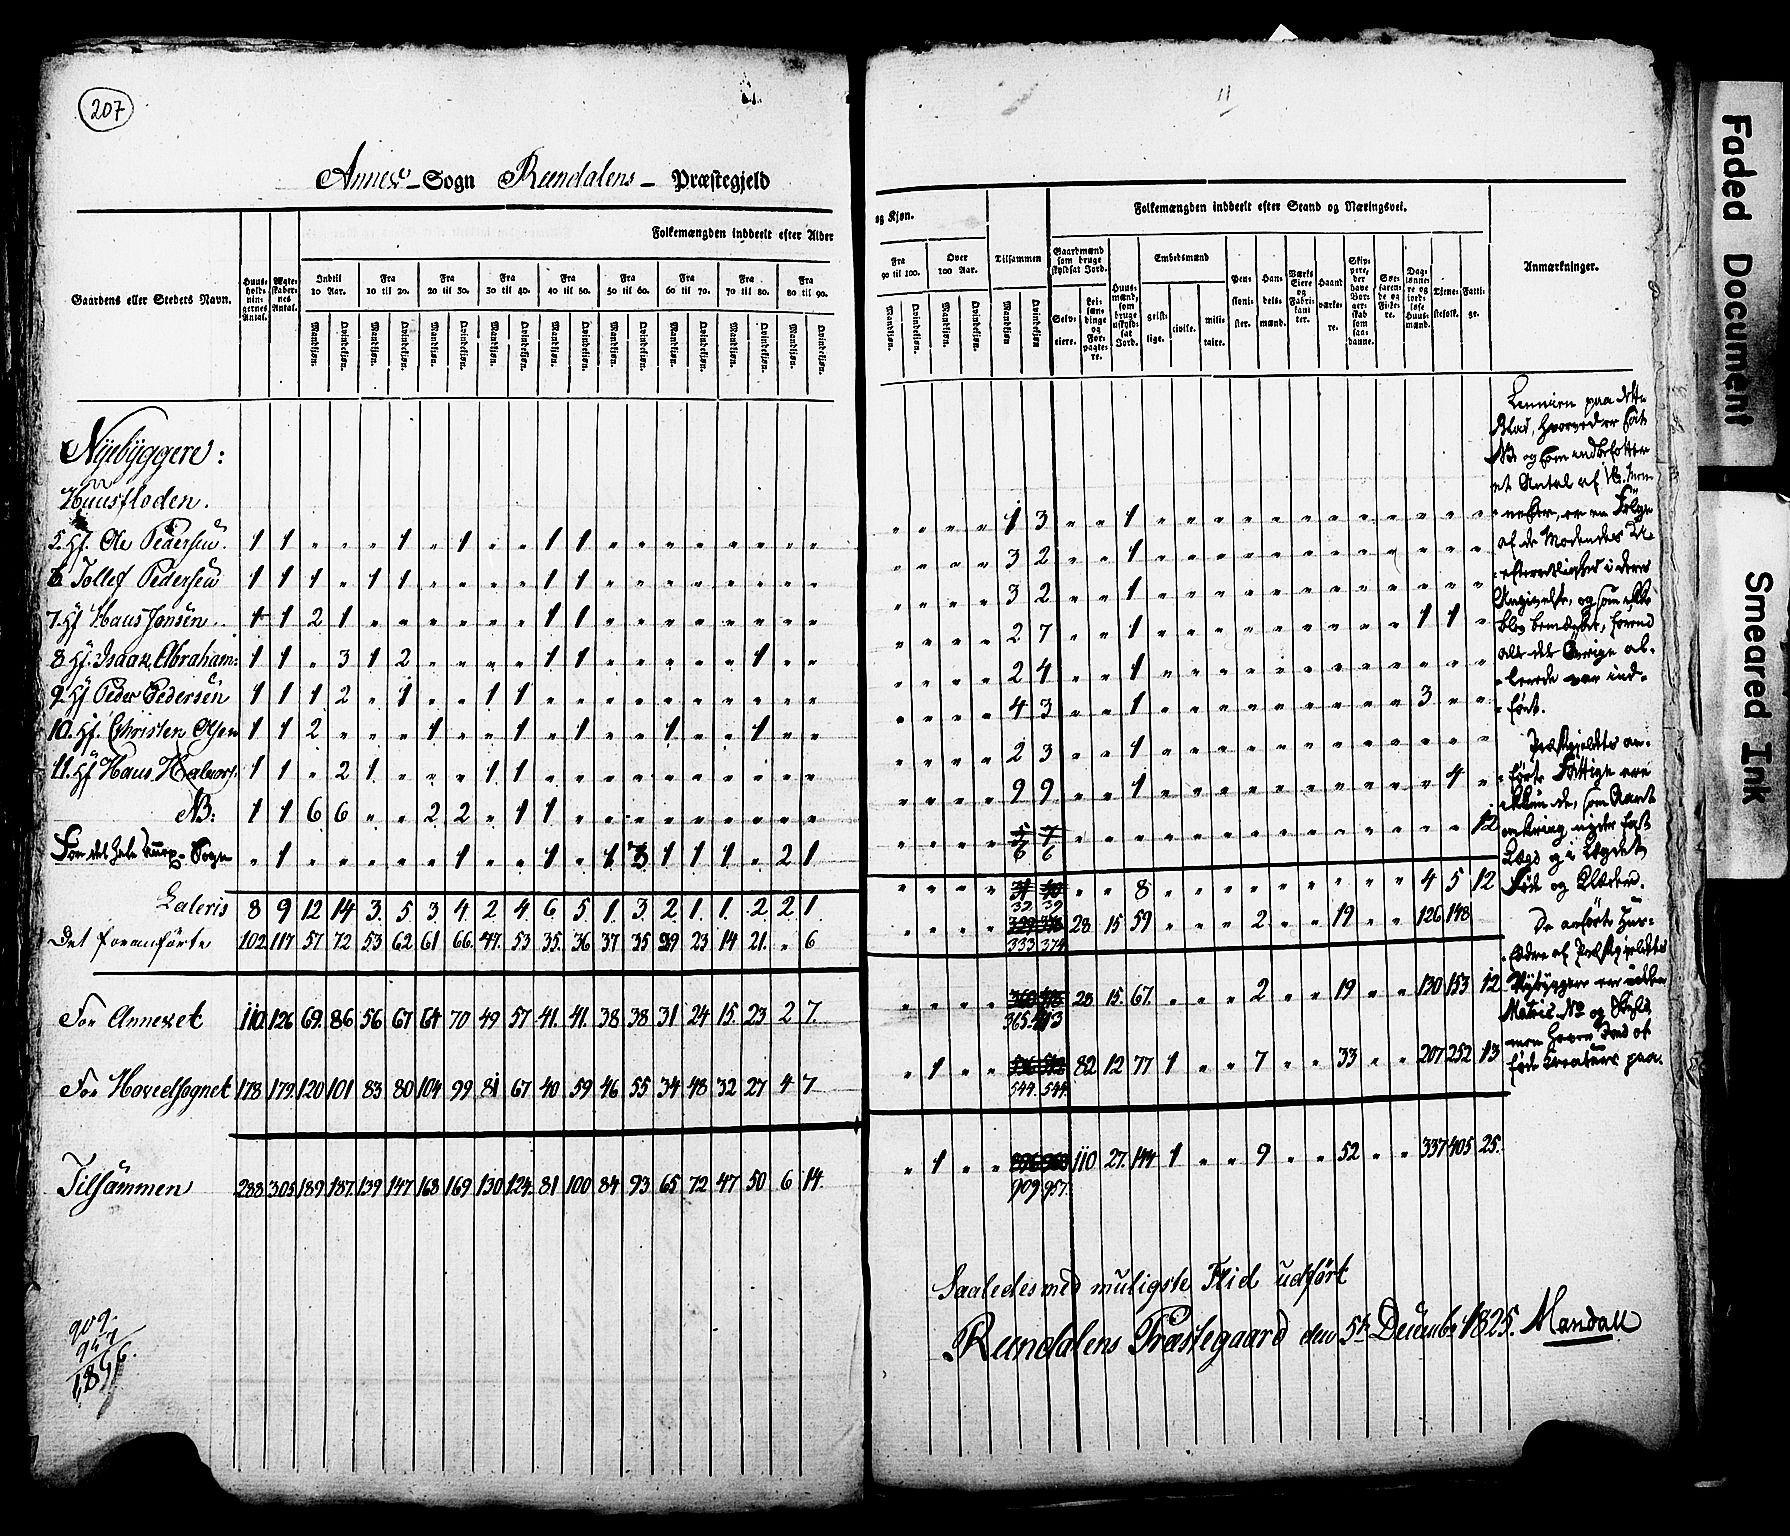 207
11
Annex-Sogn Reendalens- Præstegjeld
Gaardens eller Stedets Navn.
Huus-holdningernes Antal.
Ægteskabernes Antal.
Folkemængden inddeelt efter Alder
og Kjøn.
Indtil 10 Aar.
Fra 10 til 20.
Fra 20 til 30.
Fra 30 til 40.
Fra 40 til 50.
Fra 50 til 60.
Fra 60 til 70.
Fra 70 til 80.
Fra 80 til 90.
Fra 90 til 100.
Over 100 Aar.
Tilsammen
Mandkjøn. Qvindekjøn.
Folkemængden inddeelt efter Stand og Næringsvei.
Gaardmænd som bruge skyldsat Jord.
Selveiere.
Leilændinge og Forpagtere.
Huusmænd, som bruge uskyldsat Jord.
Embedsmænd
geistlige. civile. militaire.
Pensionister.
Handelsmænd.
Værks Eiere og Fabrikanter.
Haandværkere.
Skippere, der have Borgerskab som saadanne.
Søefarende og Fiskere.
Daglønnere og jordløse Huusmænd.
Tjenestefolk.
Fattige.
Anmærkninger.
Nÿebÿggere:
Huusfloden.
5. Hf. Ole Pedersen. 1 1 " " " 1 " 1 " " 1 1 " " " " " " " " " " " " 1 3 " " 1 " " " " " " " " " " " "
6 Tollef Pedersen 1 1 1 " 1 1 " " " " 1 1 " " " " " " " " " " " " 3 2 " " 1 " " " " " " " " " " " "
7. Hf Hans Jonsen. 1 1 2 1 " " " " " " 1 1 " " " " " " " " " " " " 3 2 " " 1 " " " " " " " " " " " "
8 Hf. Isaak Abraham: 1 1 " 3 1 2 " " " " 1 1 " " " " " 1 " " " " " " 2 7 " " 1 " " " " " " " " " 1 1 "
9 Hf Peder Pedersen 1 1 1 2 " 1 " " 1 1 " " " " " " " " " " " " " " 2 4 " " 1 " " " " " " " " " " " "
10. Hf. Christen Olsen 1 1 2 " " " 1 " " 1 " 1 " " 1 " " 1 " " " " " " 4 3 " " 1 " " " " " " " " " 3 " "
11. Hf Hans Halvors: 1 1 " 2 1 " " " 1 1 " " " " " " " " " " " " " " 2 3 " " 1 " " " " " " " " " " " "
NB: 1 1 6 6 " " 2 2 " 1 1 " " " " " " " " " " " " " 9 9 " " 1 " " " " " " " " " " 4 "
For det hele Annex-Sogn " 1 " " " " " 1 " " 1 " 1 3 1 1 1 " 2 1 " " " " 5 7 " " " " " " " " " " " " " " 12
6 6
Lateris 8 9 12 14 3. 5 3 4. 2 4. 6 5. 1. 3. 2 1 1. 2 2 1. " " " " 31 40 " " 8 " " " " " " " " " 4 5 12
32. 39
Det foranførte 102 117 57 72 53 62 61 66. 47. 53 35. 36 37 35 29 23 14 21. " 6 " " " " 28 15 59 " " " 2 " " 19 " " 126 148
333 374
For Annexet 110. 126 69. 86 56 67 64 70 49 57 41. 41. 38 38 31 24 15. 23 2 7. " " " " 28 15. 67. " " " 2 " " 19 " " 130 153 12
365. 413
For Hovedsognet 178 179. 120 101 83 80 104 99 81 67 40 59 46 55 34 48 32 27 4 7 " 1 " " 82 12 77 1 " " 7 " " 33 " " 207 252 13
544. 544.
Tilsammen 288. 305. 189. 187. 139 147 168 169 130 124. 81 100 84 93 65 72 47 50 6 14. " 1 " " 110 27. 144 1 " " 9 " " 52 " " 337 405 25.
909. 957.
paa dette
Blad, hvorved er sat
NB. og som indbefatter
et Antal af
er en Følge
af de
i deres
Angivelse, og som ikke
blev bemærket, førend
alt det Øvrige al-
lerede var ind-
ført.
Præstegjeldets an-
førte Fattige ere
kun de, som
omkring nyder fast
Lægd og i Lægdet
Føde og Klæder.
De anførte Huus-
fædre af Præstegjeldets
Nÿbÿggere ere uden
Matric. No og Skyld,
men haver Jord at
føde Creature paa.
909.
957
1,866.
Saaledes med muligste Flid udført
Reendalens Præstegaard den 5te Decembr 1825. Mandall
Faded Document
Smeared Ink